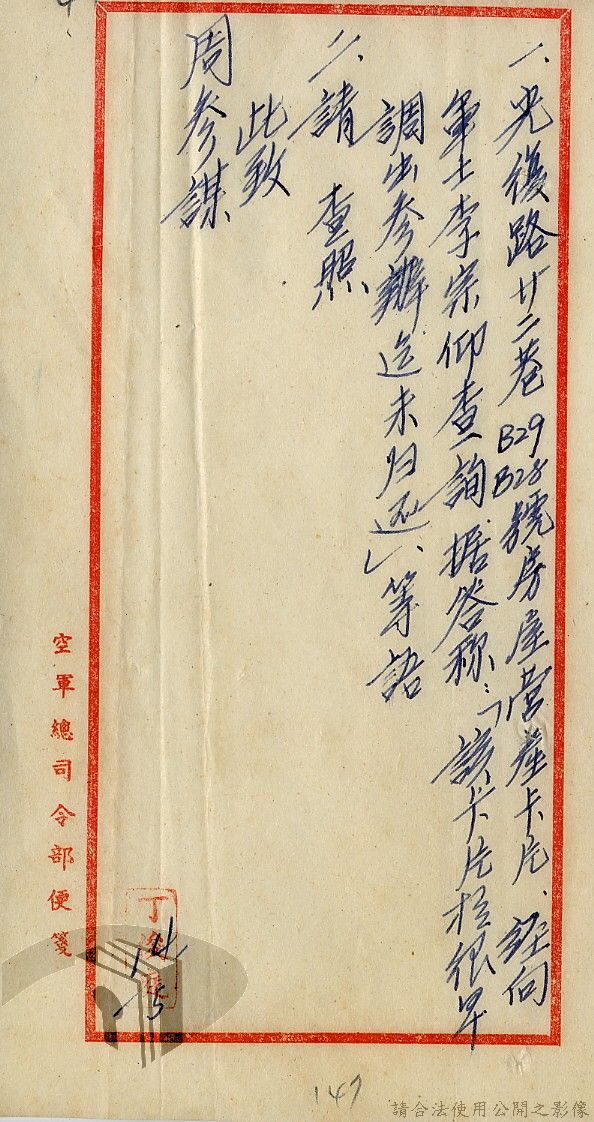 一、光復路廿二巷B29 B28號房屋营產卡片、經向
軍士李宗仰查詢据答称：「該卡片於很早
調出參辦迄未归还」、等語
二、請 查照
此致
周參謀
丁
空軍總司令部便箋
147
請合法使用公開之影像